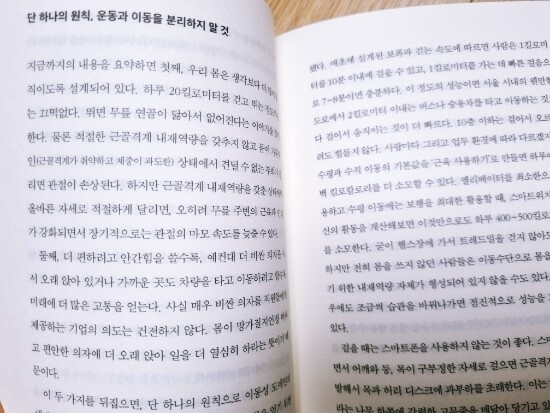 단 하나의 원칙, 운동과 이동을 분리하지 말 것
지금까지의 내용을 요약하면 첫째, 우리 몸은 생각보다 더 많이 움
직이도록 설계되어 있다. 하루 20킬로미터를 걷고 뛰는 정도
는 끄떡없다. 뛰면 무릎 연골이 닳아서 없어진다는 이야기를
한다. 물론 적절한 근골격계 내재역량을 갖추지 않고 몸이
인(근골격계가 취약하고 체중이 과도한) 상태에서 견딜 수 없는
리면 관절이 손상된다. 하지만 근골격계 내재역량을 갖춘 상태에서
올바른 자세로 적절하게 달리면, 오히려 무릎 주변의 근육과
가 강화되면서 장기적으로는 관절의 마모 속도를 늦출 수 있다.
둘째, 더 편하려고 안간힘을 쓸수록, 예컨대 더 비싼 의자를
서 오래 앉아 있거나 가까운 곳도 차량을 타고 이동하려고 할수
미래에 더 많은 고통을 얻는다. 사실 매우 비싼 의자를 직원들에게
제공하는 기업의 의도는 건전하지 않다. 몸이 망가질지언정
고 편안한 의자에 더 오래 앉아 일을 더 열심히 하라는 뜻이기 때
문이다.
이 두 가지를 뒤집으면, 단 하나의 원칙으로 이동성 도메인
했다. 애초에 설계된 보폭과 걷는 속도에 따르면 사람은 1킬로미
터를 10분 이내에 걸을 수 있고, 1킬로미터를 가는 데 빠른 걸음으
로 7~8분이면 충분하다. 이 정도의 성능이면 서울 시내의 웬만한
도로에서 2킬로미터 이내는 버스나 승용차를 타고 이동하는 것
다 걸어서 움직이는 것이 더 빠르다. 10층 이하는 걸어서
려도 힘들지 않다. 사람마다 그리고 업무 환경에 따라 다르겠지
수평과 수직 이동의 기본값을 '근육 사용하기'로 만들면 하루
백 킬로칼로리를 더 소모할 수 있다. 엘리베이터를 최소한으
용하고 수평 이동에는 보행을 최대한 활용할 때, 스마트워치
신의 활동을 계산해보면 이것만으로도 하루 400~500킬로
를 소모한다. 굳이 헬스장에 가서 트레드밀을 걷지 않아도
하지만 전혀 몸을 쓰지 않던 사람들은 이동수단으로 몸을
기 위한 내재역량 자체가 형성되어 있지 않을 수도 있다.
우에도 조금씩 습관을 바꿔나가면 점진적으로 성능이
있다.
걸을 때는 스마트폰을 사용하지 않는 것이 좋다. 스마
면서 어깨와 등, 목이 구부정한 자세로 걸으면 근골격
발해서 목과 허리 디스크에 과부하를 초래한다.